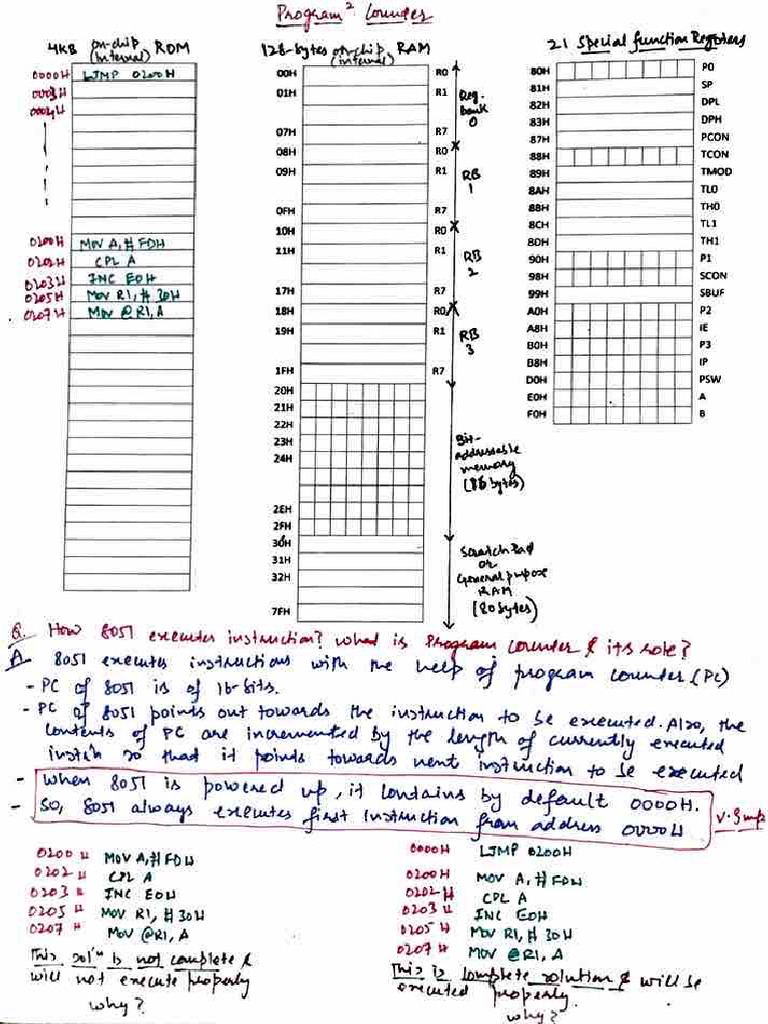 Program² Counter
4KB on-chip (Internal) ROM
0000H LJMP 0200H
0003H
0004H
0200H MOV A,# FDH
0202H CPL A
0203H INC E0H
0205H MOV R1, # 30H
0207H MOV @R1, A
128-bytes on-chip RAM
(internal)
00H R0
01H R1
07H R7
08H R0
09H R1
0FH R7
10H R0
11H R1
17H R7
18H R0
19H R1
1FH R7
20H
21H
22H
23H
24H
2EH
2FH
30H
31H
32H
7FH
Reg. bank 0
RB 1
RB 2
RB 3
Bit-
addressable
memory
(16 bytes)
Scratch Pad
or
General purpose
RAM
(80 bytes)
21 Special function Registers
80H P0
81H SP
82H DPL
83H DPH
87H PCON
88H TCON
89H TMOD
8AH TL0
88H TH0
8CH TL1
8DH TH1
90H P1
98H SCON
99H SBUF
A0H P2
A8H IE
B0H P3
B8H IP
D0H PSW
E0H A
F0H B
Q. How 8051 executes instruction? What is Program Counter & its role?
A 8051 executes instructions with the help of program counter (PC)
- PC of 8051 is of 16-bits.
- PC of 8051 points out towards the instruction to be executed. Also, the
contents of PC are incremented by the length of currently executed
instⁿ so that it points towards next instruction to be executed
- When 8051 is powered up, it contains by default 0000H.
- So, 8051 always executes first instruction from address 0000H
V. Imp
0200H MOV A,# FDH
0202H CPL A
0203H INC E0H
0205H MOV R1, # 30H
0207H MOV @R1, A
This solⁿ is not complete &
will not execute properly
why?
0000H LJMP 0200H
0200H MOV A, # FDH
0202H CPL A
0203H INC E0H
0205H MOV R1, # 30H
0207H MOV @R1, A
This is complete solution & will be
executed properly.
why?